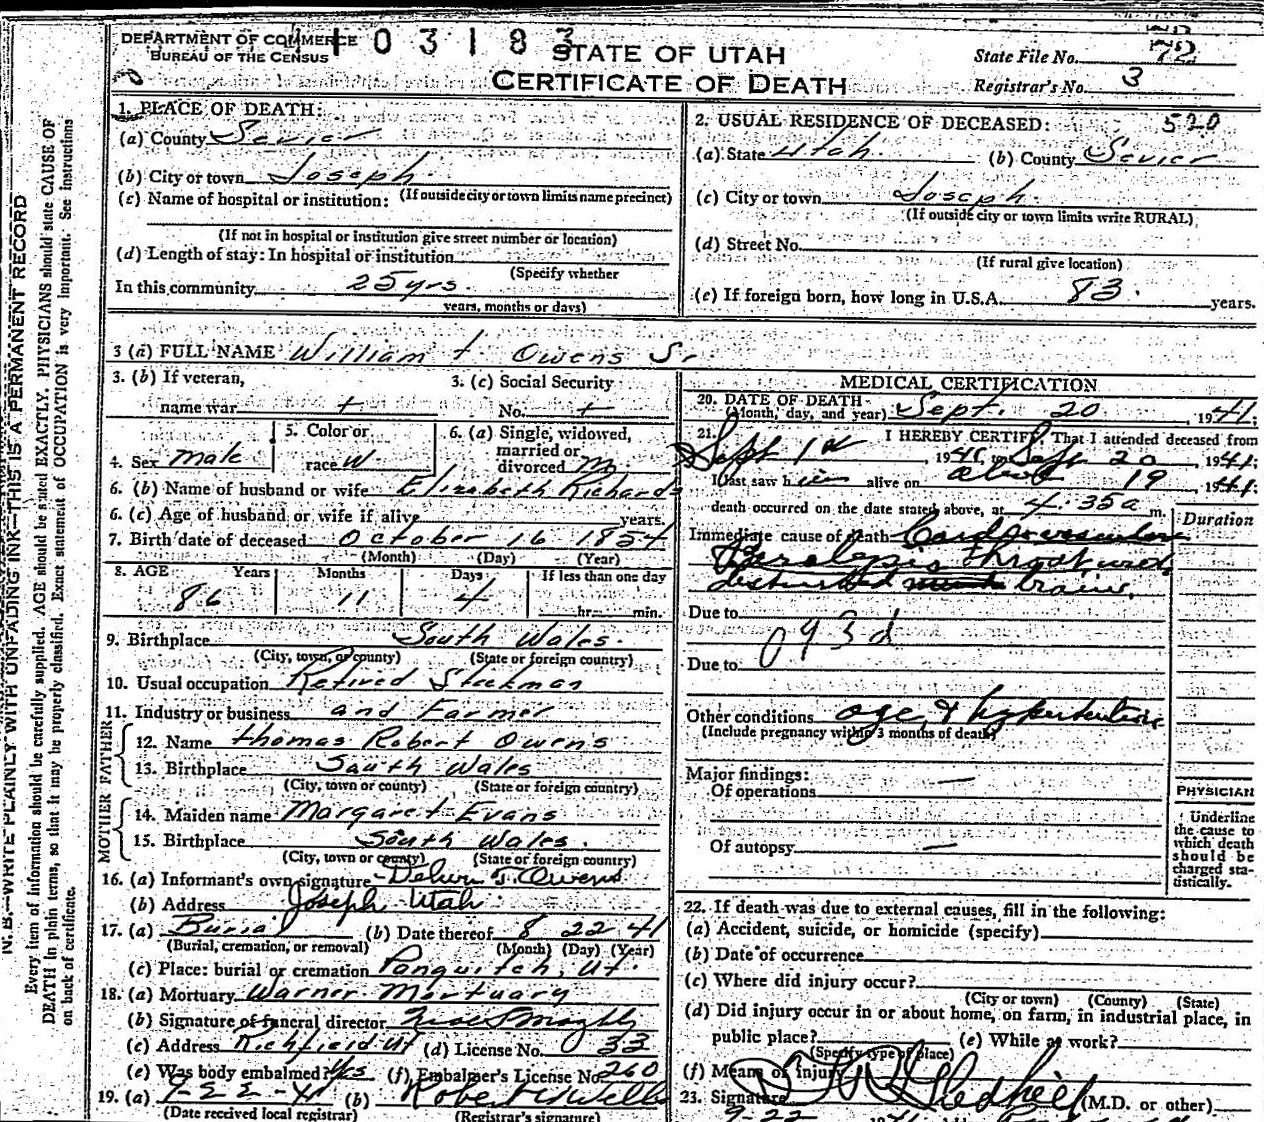 DEPARTMENT OF COMMERCE
BUREAU OF THE CENSUS
03183
STATE OF UTAH
CERTIFICATE OF DEATH
State File No. 72
Registrar's No. 3
N. B.—WRITE PLAINLY WITH UNFADING INK—THIS IS A PERMANENT RECORD
Every item of information should be carefully supplied. AGE should be stated EXACTLY. PHYSICIANS should state CAUSE OF
DEATH in plain terms, so that it may be properly classified. Exact statement of OCCUPATION is very important. See instructions
on back of certificate.
1. PLACE OF DEATH:
(a) County Sevier
(b) City or town Joseph
(If outside city or town limits name precinct)
(c) Name of hospital or institution:
(If not in hospital or institution give street number or location)
(d) Length of stay: In hospital or institution
(Specify whether
In this community 25 yrs.
years, months or days)
2. USUAL RESIDENCE OF DECEASED: 520
(a) State Utah (b) County Sevier
(c) City or town Joseph
(If outside city or town limits write RURAL)
(d) Street No.
(If rural give location)
(e) If foreign born, how long in U.S.A. 83 years.
3 (a) FULL NAME William t. Owens Sr
3. (b) If veteran,
name war
3. (c) Social Security
No.
4. Sex male
5. Color or
race W
6. (a) Single, widowed,
married or
divorced M
6. (b) Name of husband or wife Elizabeth Richards
6. (c) Age of husband or wife if alive years.
7. Birth date of deceased October 16 1854
(Month) (Day) (Year)
8. AGE Years Months Days If less than one day
86 11 4 hr. min.
9. Birthplace South Wales
(City, town, or county) (State or foreign country)
10. Usual occupation Retired Stockman
11. Industry or business and Farmer
FATHER
12. Name Thomas Robert Owens
13. Birthplace South Wales
(City, town or county) (State or foreign country)
MOTHER
14. Maiden name Margaret Evans
15. Birthplace South Wales.
(City, town or county) (State or foreign country)
16. (a) Informant's own signature Owens
(b) Address Joseph Utah
17. (a) Burial (b) Date thereof 8 22 41
(Burial, cremation, or removal) (Month) (Day) (Year)
(c) Place: burial or cremation Panguitch, Ut.
18. (a) Mortuary Warner Mortuary
(b) Signature of funeral director
(c) Address Richfield Ut (d) License No. 33
(e) Was body embalmed? Yes (f) Embalmer's License No. 260
19. (a) 9-22-41 (b) Robert
(Date received local registrar) (Registrar's signature)
MEDICAL CERTIFICATION
20. DATE OF DEATH
(Month, day, and year) Sept. 20, 1941;
21. I HEREBY CERTIFY, That I attended deceased from
Sept 1st, 1941, to Sept 20, 1941;
I last saw him alive on 19, 1941;
death occurred on the date stated above, at 4:35a m.
Duration
Immediate cause of death
brain.
Due to 093d
Due to
Other conditions age & hypertension
(Include pregnancy within 3 months of death)
Major findings:
Of operations —
Of autopsy —
PHYSICIAN
Underline
the cause to
which death
should be
charged sta-
tistically.
22. If death was due to external causes, fill in the following:
(a) Accident, suicide, or homicide (specify)
(b) Date of occurrence
(c) Where did injury occur?
(City or town) (County) (State)
(d) Did injury occur in or about home, on farm, in industrial place, in
public place? (e) While at work?
(Specify type of place)
(f) Means of injury
23. Signature (M.D. or other)
9-22